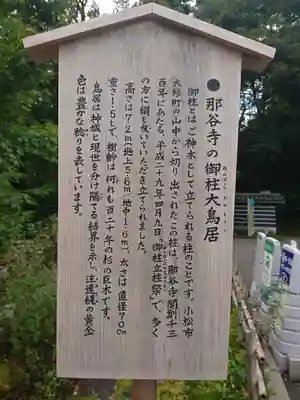 ●那谷寺の御柱大鳥居
御柱とはご神木として立てられる柱のことです。小松市
大杉町の山中から切り出されたこの柱は、那谷寺開創千三
百年にあたる、平成二十九年四月九日「御柱立柱祭」で、多く
の方に綱を曳いていただき立てられました。
高さは7.2m(地上5.6m・地中1.6m)、太さは直径70cm
重さ1.5tで、樹齢は何れも百二十年の杉の巨木です。
鳥居は神域と現世を分け隔てる結界を示し、注連縄の黄金
色は豊かな稔りを表しています。